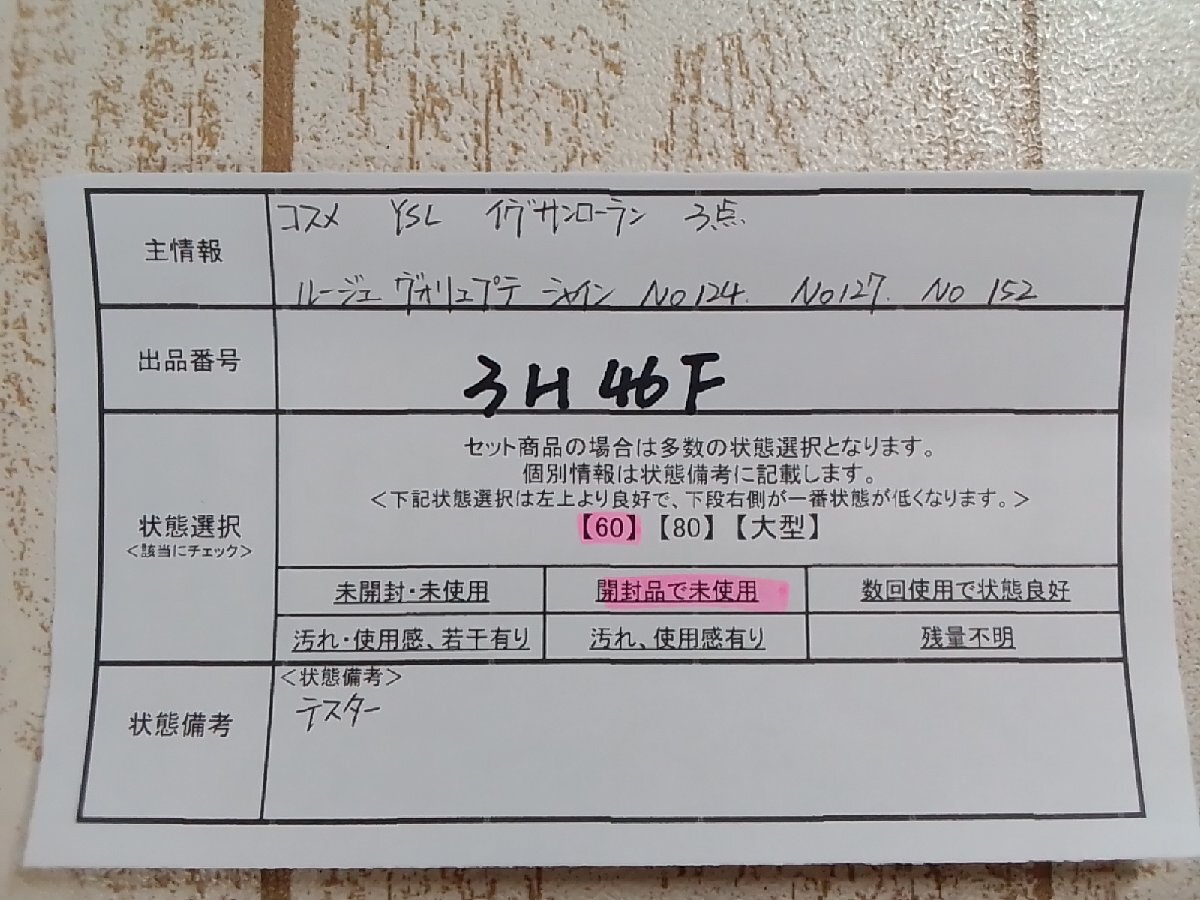 主情報
コスメ YSL イヴサンローラン 3点
ルージュ ヴォリュプテ シャイン No124. No127. No 152
出品番号
3H46F
状態選択
<該当にチェック>
セット商品の場合は多数の状態選択となります。
個別情報は状態備考に記載します。
<下記状態選択は左上より良好で、下段右側が一番状態が低くなります。>
【60】【80】【大型】
未開封・未使用 開封品で未使用 数回使用で状態良好
汚れ・使用感、若干有り 汚れ、使用感有り 残量不明
状態備考
<状態備考>
テスター